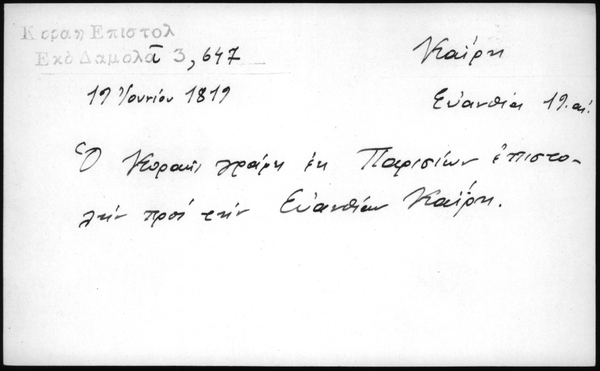 Κοραη Επιστολ
Εκδ Δαμαλα τ 3, 647
Καΐρη
19 Ἰουνίου 1819
Εὐανθία 19. αἰ.
Ὁ Κοραῆς γράφει ἐκ Παρισίων ἐπιστο-
λὴν πρὸς τὴν Εὐανθίαν Καΐρη.